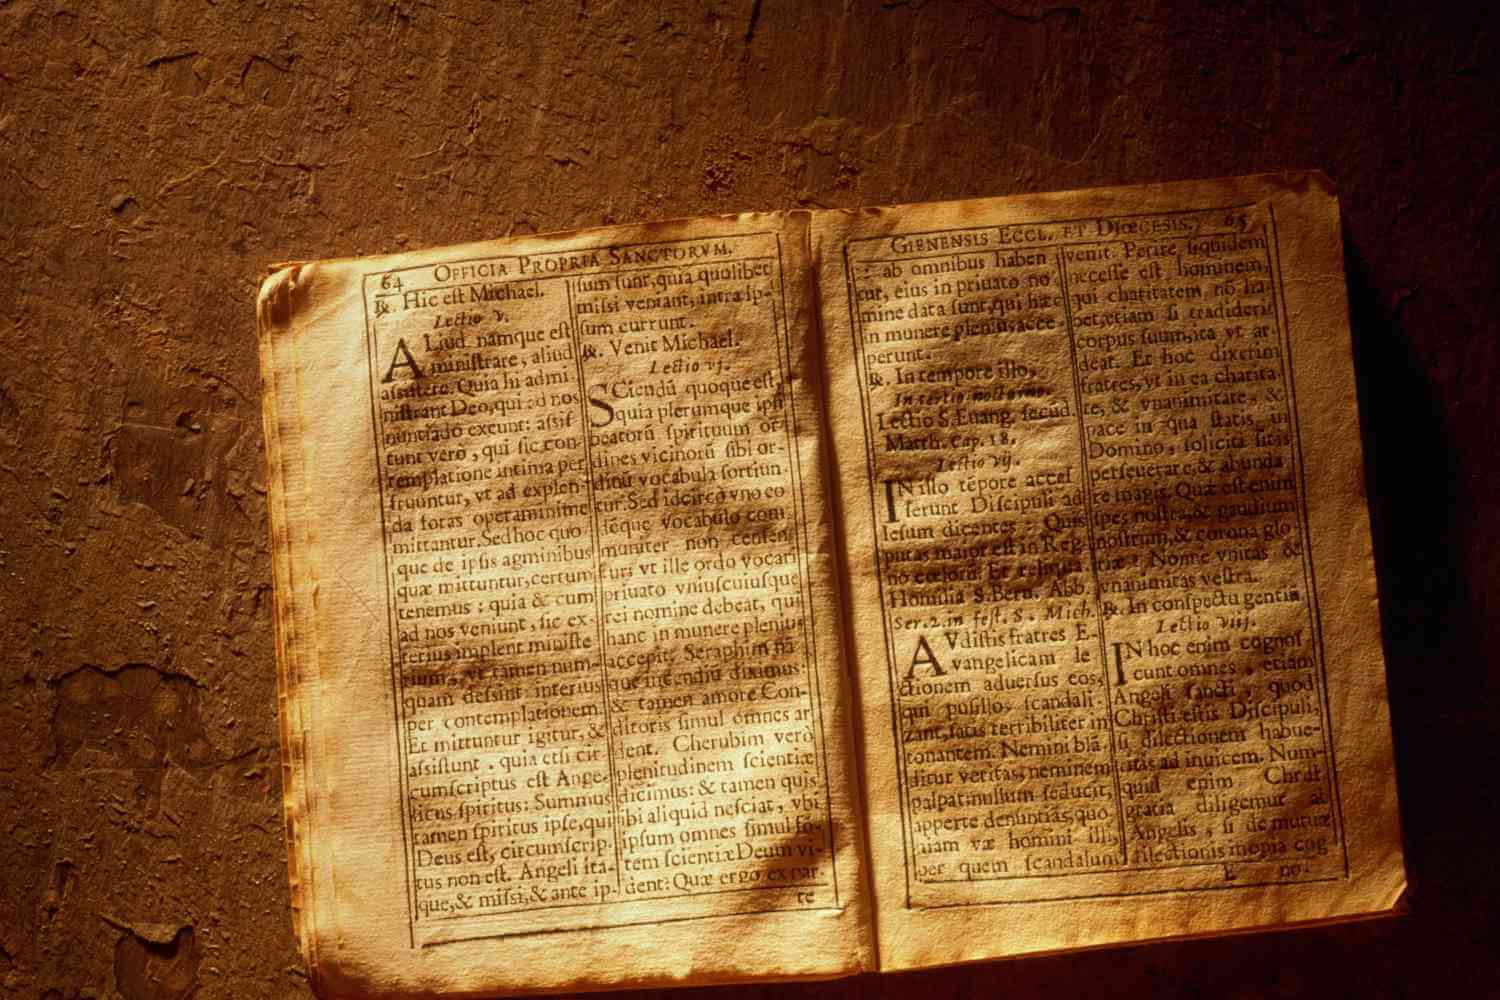 64 OFFICIA PROPRIA SANCTORVM.
℟. Hic eſt Michael.
Lectio v.
ALiud namque eſt
miniſtrare, aliud
aſſiſtere. Quia hi admi-
niſtrant Deo, qui ad nos
nuntiādo exeunt: aſſiſ-
tunt verò, qui ſic con-
templatione intima per
fruuntur, vt ad explen-
da foras operaminime
mittantur. Sed hoc quo
que de ipſis agminibus
quæ mittuntur, certum
tenemus: quia & cum
ad nos veniunt, ſic ex-
terius implent miniſte
rium, vt tamen num-
quam deſint interius
per contemplationem.
Et mittuntur igitur, &
aſſiſtunt. quia etſi cir-
cumſcriptus eſt Ange-
licus ſpiritus: Summus
tamen ſpiritus ipſe, qui
Deus eſt, circumſcrip-
tus non eſt. Angeli ita-
que, & miſſi, & ante ip-
ſum ſunt, quia quolibet
miſſi veniant, intra ip-
ſum currunt.
℟. Venit Michael.
Lectio vj.
SCiendū quoque eſt,
quia plerumque ipſi
beatorū ſpirituum or-
dines vicinorū ſibi or-
dinū vocabula ſortiun-
tur. Sed idcircò vno eo
vocabulo com
muniter non cenſen
turi vt ille ordo vocari
priuato vniuſcuiuſque
rei nomine debeat, qui
hanc in munere plenius
accepit. Seraphim nā
que incendiū diximus:
& tamen amore Con-
ditoris ſimul omnes ar
dent. Cherubim verò
plenitudinem ſcientiæ
dicimus: & tamen quis
ibi aliquid neſciat, vbi
ipſum omnes ſimul fō-
tem ſcientiæ Deum vi-
dent: Quæ ergo ex par-
te
GIENENSIS ECCL. ET DIŒCESIS. 65
ab omnibus haben
tur, eius in priuato no
mine data ſunt, qui hæc
in munere plenius acce-
perunt.
℟. In tempore illo.
In tertio nocturno.
Lectio S. Euang. ſecūd.
Matth. Cap. 18.
Lectio vij.
IN illo tēpore acceſ
ſerunt Diſcipuli ad
Ieſum dicentes: Quis
putas maior eſt in Reg-
no cœlorū. Et reliqua
Homilia S. Bern. Abb.
Ser. 2. in feſt. S. Mich.
AVdiſtis fratres E-
vangelicam le
ctionem aduerſus eos,
qui puſillos ſcandali-
zant, ſatis terribiliter in
tonantem. Nemini blā-
ditur veritas, neminem
palpat, nullum ſeducit,
apperte denuntiās, quo
niam væ homini illi,
per quem ſcandalum
venit. Perire, ſiquidem
neceſſe eſt hominem,
qui charitatem nō ha-
bet, etiam ſi tradiderit
corpus ſuum, ita vt ar-
deat. Et hoc dixerim
fratres, vt in ea charita-
te, & vnanimitate, &
pace in qua ſtatis in
Domino, ſoliciti ſitis
perſeuerare, & abunda
re magis. Quæ eſt enim
ſpes noſtra, & gaudium
noſtrum, & corona glo
riæ? Nonne vnitas &
vnanimitas veſtra.
℟. In conſpectu gentiū
Lectio viij.
IN hoc enim cognoſ
cunt omnes, etiam
Angeli ſancti, quod
Chriſti eſtis Diſcipuli,
ſi dilectionem habue-
ritis ad inuicem. Num-
quid enim Chriſt
gratia diligemur ab
Angelis, ſi de mutuæ
dilectionis inopia cog
E no-